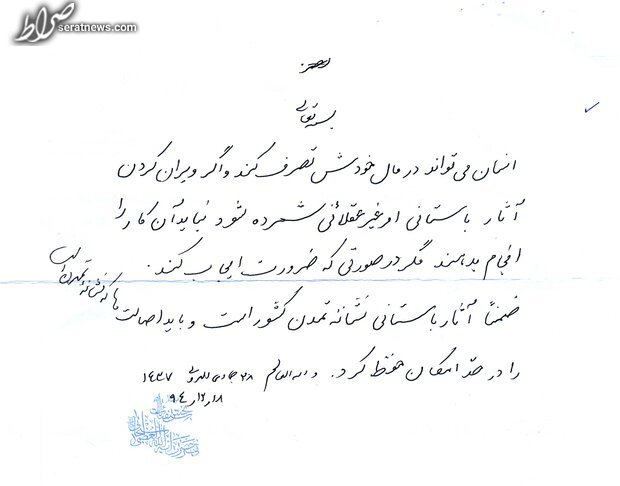 صراط
seratnews.com
بسمه تعالی
انسان می‌تواند در مال خودش تصرف کند و اگر ویران کردن
آثار باستانی امر غیر عقلائی شمرده شود نباید آن کار را
انجام بدهند مگر در صورتی که ضرورت ایجاب کند.
ضمناً آثار باستانی نشانه تمدن کشور است و باید اصالت‌ها
که نشانه تمدن است
را در حدّ امکان حفظ کرد. والله العالم ۲۸ جمادی الاولی ۱۴۳۷
۱۸ر۱۲ر۹۴